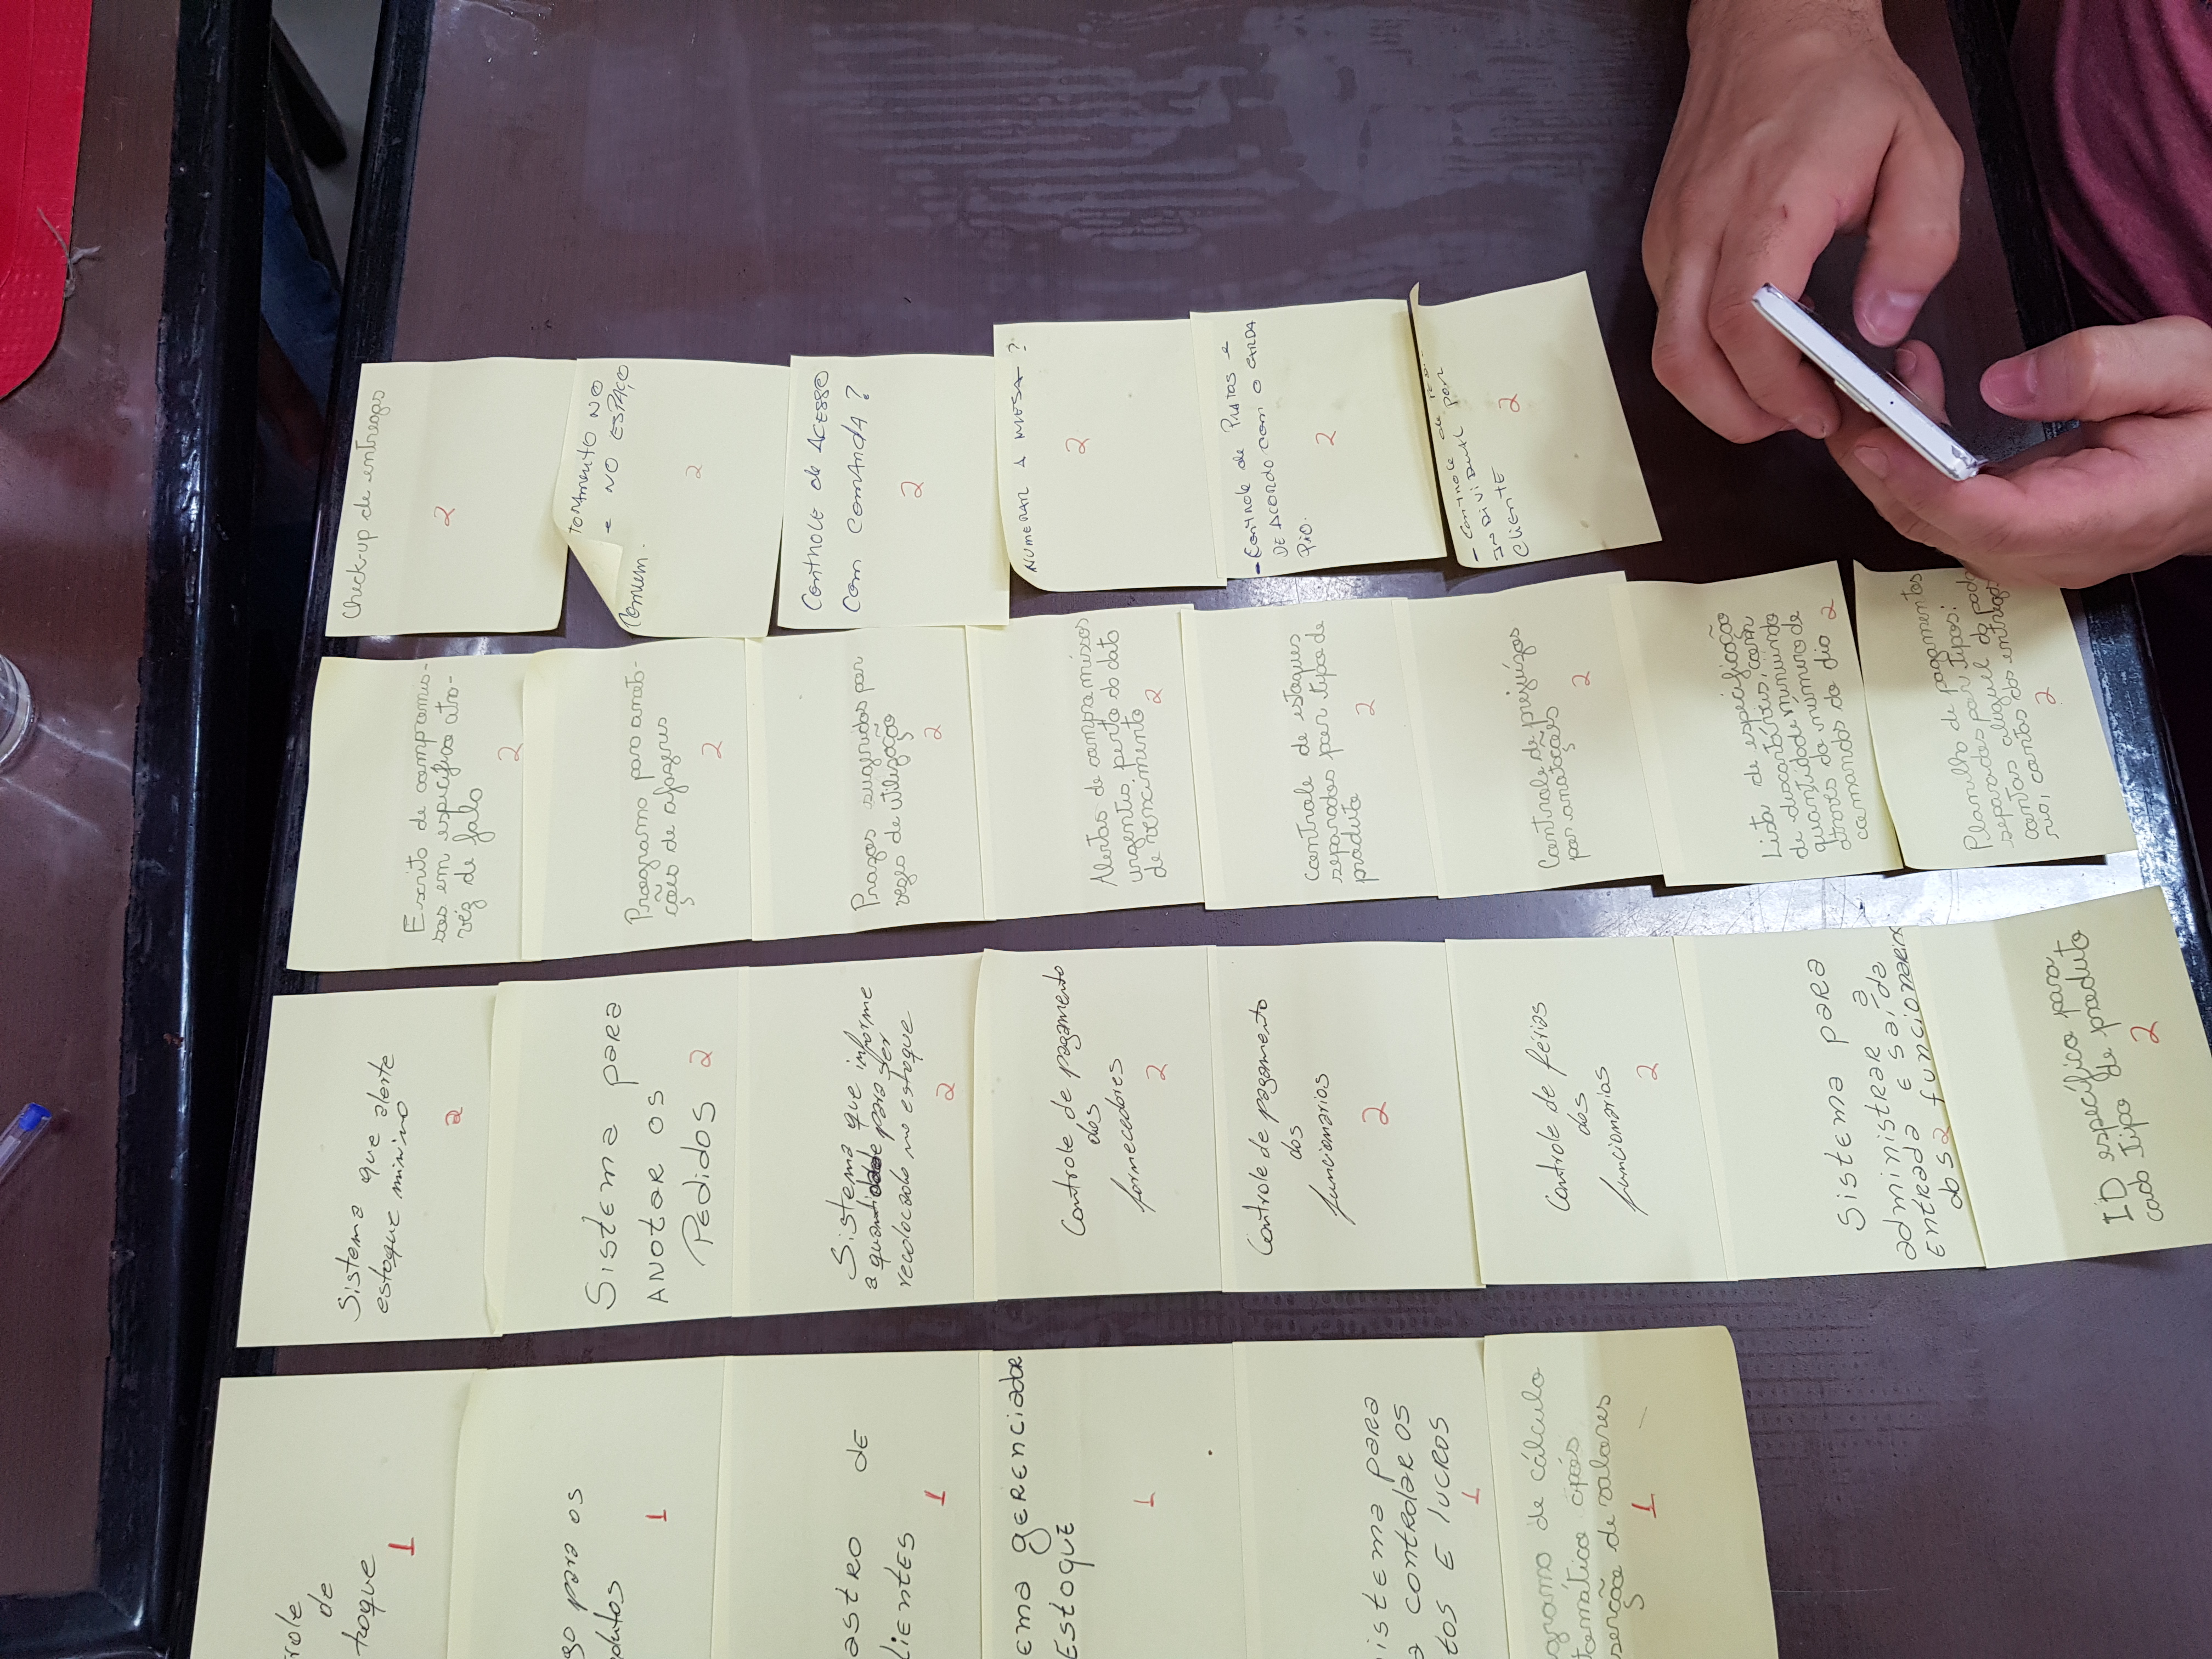 Check-up de entregas
2
NO
- NO ESPAÇO
Comum.
2
CONTROLE de ACESSO
COM COMANDA?
2
NUMERAR A MESA?
2
- CONTROLE de PRATOS e
DE ACORDO COM O CARDA
PIO.
2
- CONTROLE de
INDIVIDUAL POR
CLIENTE
2
Escrita de compromis-
sos em específico atra-
véz de fala
2
Programa para anota-
ções de afazeres
2
Prazos sugeridos por
vezes de utilização
2
Alertas de compromissos
urgentis perto da data
de vencimento
2
Controle de estoques
separados por tipo de
produto
2
Controle de prejuízos
por anotações
2
Lista de especificação
de discartáveis, com
quantidade minuindo
através do número de
comandas do dia
2
Planilha de pagamentos
separados por tipos:
contas aluguel do
contas das
2
Sistema que alerte
estoque minino
2
Sistema para
ANOTAR OS
PEdidOS
2
Sistema que informe
a quantidade para ser
recolocado no estoque
2
Controle de pagamento
dos
fornecedores
2
Controle de pagamento
dos
funcionarios
2
Controle de feŕias
dos
funcionarios
2
Sistema para
administrar a
Entrada E saída
dos funcionarios
2
ID específico para
cada tipo de produto
2
role
de
toque
1
go para os
odutos
1
astro de
lientes
1
ema gerenciador
Estoque
1
istema para
a controlar os
tos E lucros
1
grama de cálculo
temático após
serção de valores
1